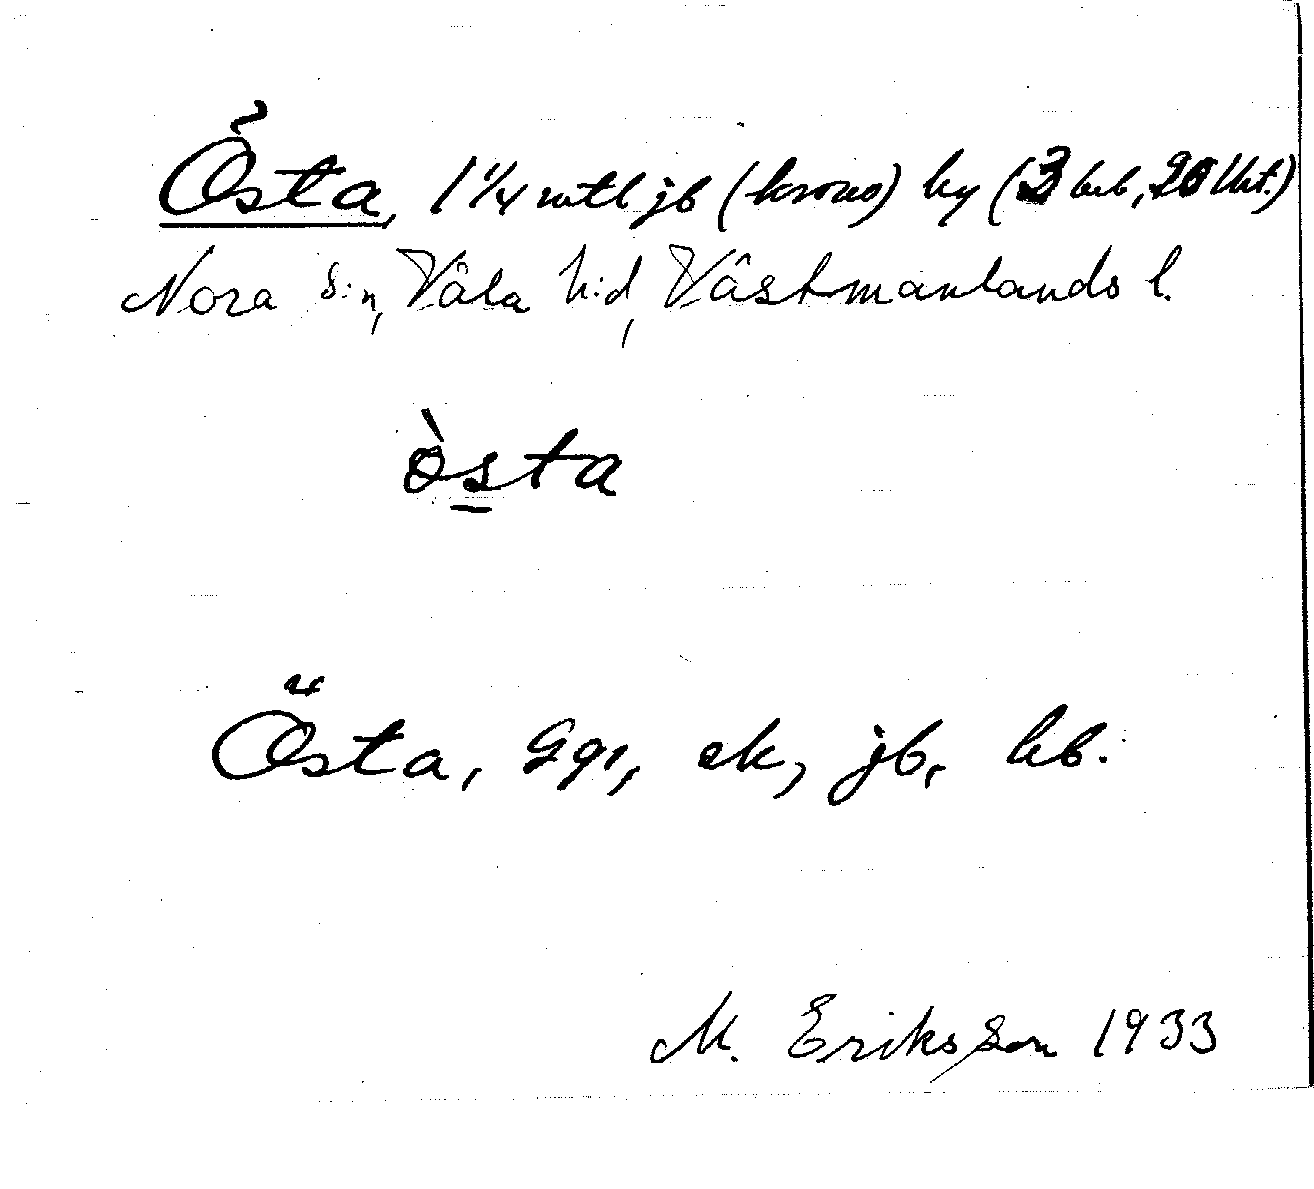 Östa, 1 1/4 mtl jb (krono) by (3 brb, 26 lht.)
Nora s:n, Våla h:d, Västmanlands l.
òsta
Östa, Gge, ek, jb, hb.
M. Eriksson 1933